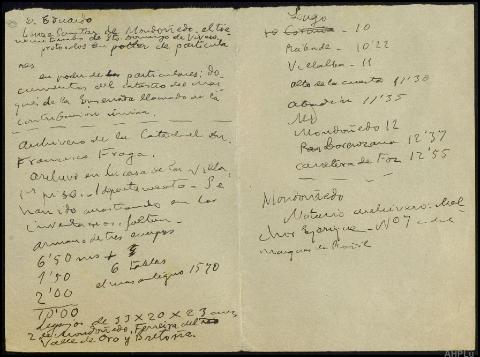 D. Eduardo
Lence Santar de Mondoñedo, el to
de Sto. Domingo de Vivero,
protocolos en poder de particula
res
en poder de particulares; do
cumentos del catastro del mar
qués de la Ensenada llamado de la
contribucion única.
archivero de la Catedral Sr.
Francisco Fraga.
archivo en la casa de la Villa,
1er piso. 1 departamento. Se
han ido anotando en los
inventarios, faltan
armario de tres cuerpos
6'50 ms +
1'50 6 tablas
2'00 el mas antiguo 1570
10'00
Legajos de 33 x 20 x 23 cms,
2 de Mondoñedo, Ferreira del
Valle de Oro y Bretoña.
Lugo
- 10
Rábade - 10'22
Villalba - 11
alto de la cuesta 11'30
Abadín 11'35
Mondoñedo 12
Lorenzana 12'37
carretera de Foz 12'55
Mondoñedo
Notario archivero: Mel
chor - Nº 7 c. del
Marques de
AHPLu